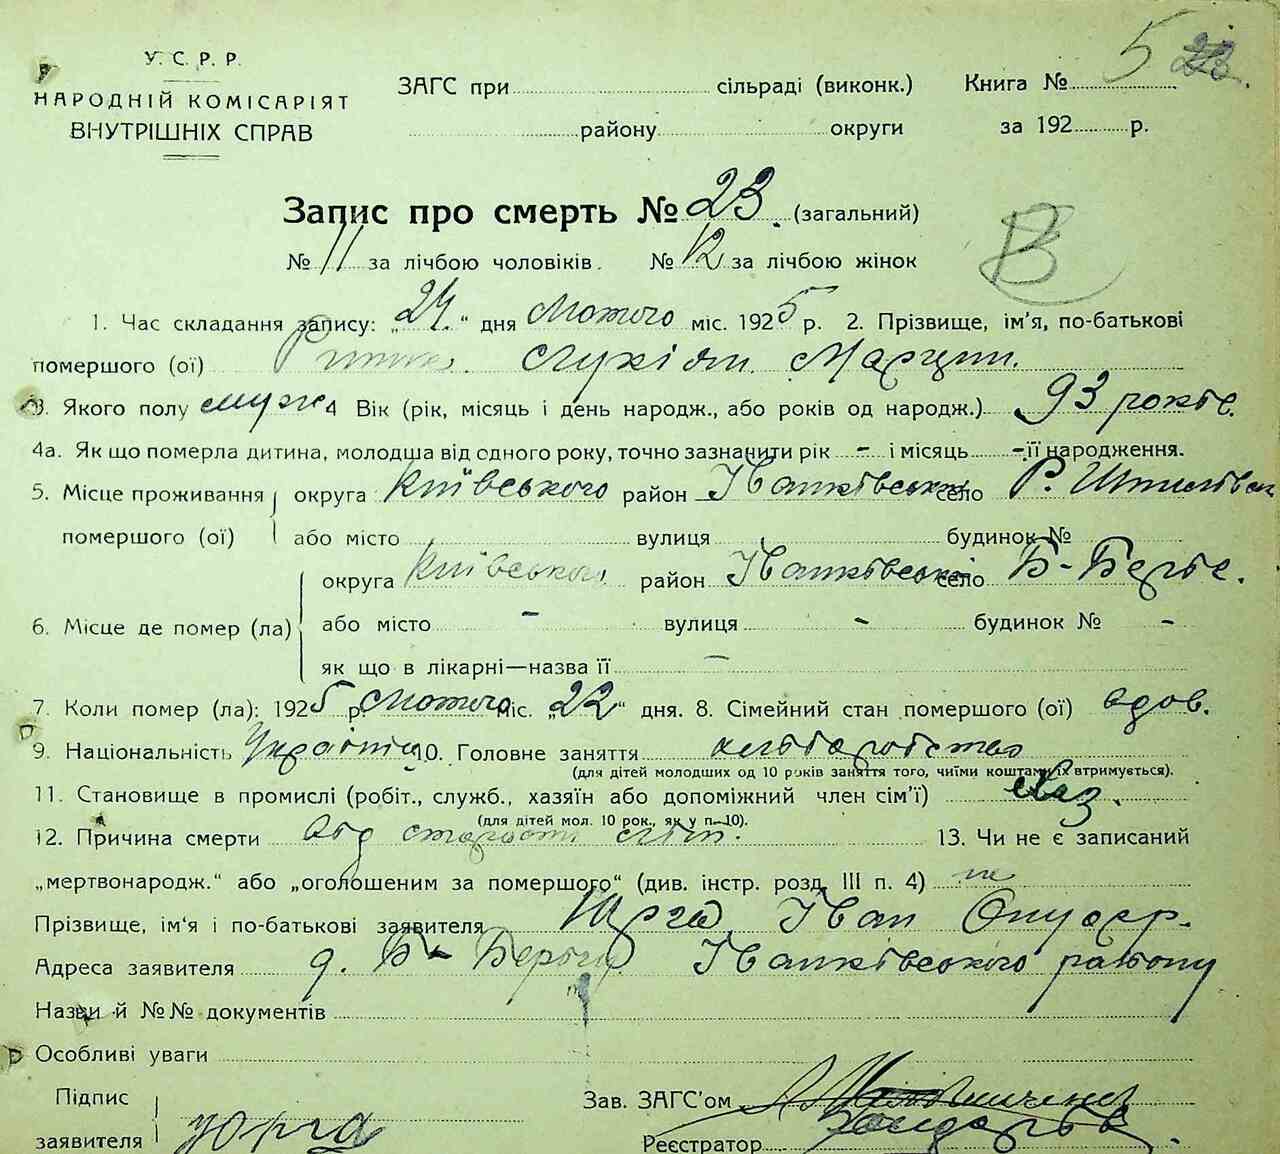 5 23
У. С. Р. Р.
НАРОДНІЙ КОМІСАРІЯТ
ВНУТРІШНІХ СПРАВ
ЗАГС при сільраді (виконк.) Книга №
району округи за 192 р.
Запис про смерть № 23. (загальний)
№ 11 за лічбою чоловіків. № 12 за лічбою жінок
В
1. Час складання запису: „24." дня Лютого міс. 1925 р. 2. Прізвище, ім'я, по-батькові
помершого (ої) Лукіян Марцин.
3. Якого полу муж 4 Вік (рік, місяць і день народж., або років од народж.) 93 років.
4а. Як що померла дитина, молодша від одного року, точно зазначити рік - і місяць - її народження.
5. Місце проживання округа Київського район Іванківський село Р.
помершого (ої) або місто вулиця будинок №
округа Київського район Іванківський село Б-
6. Місце де помер (ла) або місто - вулиця - будинок № -
як що в лікарні—назва її —
7. Коли помер (ла): 1925 р. Лютого міс. „22" дня. 8. Сімейний стан помершого (ої) вдов.
9. Національність Українец 10. Головне заняття хліборобство
(для дітей молодших од 10 років заняття того, чиїми коштами їх втримується).
11. Становище в промислі (робіт., служб., хазяїн або допоміжний член сім'ї) Хаз.
(для дітей мол. 10 рок., як у п. 10).
12. Причина смерти від старости літ. 13. Чи не є записаний
„мертвонародж." або „оголошеним за помершого" (див. інстр. розд. III п. 4) не
Прізвище, ім'я і по-батькові заявителя Юрга Іван Онуфр.
Адреса заявителя д. Б- Іванківського району
Назви й №№ документів
Особливі уваги
Підпис
заявителя Юрга
Зав. ЗАГС'ом
Реєстратор